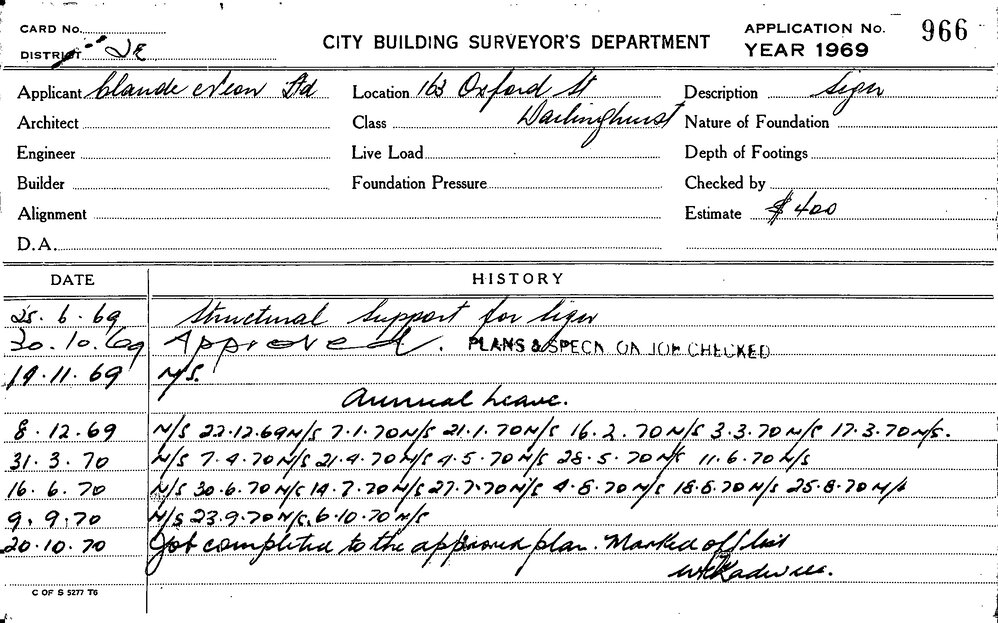 CARD No.
DISTRICT
CITY BUILDING SURVEYOR'S DEPARTMENT
APPLICATION No. 966
YEAR 1969
Applicant Claude Neon Ltd
Location 163 Oxford St
Description Sign
Architect
Class Darlinghurst
Nature of Foundation
Engineer
Live Load
Depth of Footings
Builder
Foundation Pressure
Checked by
Alignment
Estimate $400
D.A.
DATE HISTORY
25.6.69 Structural Support for Sign
30.10.69 Approved. PLANS & SPECN ON JOB CHECKED
19.11.69 N/S.
Annual Leave.
8.12.69 N/S 22.12.69 N/S 7.1.70 N/S 21.1.70 N/S 16.2.70 N/S 3.3.70 N/S 17.3.70 N/S.
31.3.70 N/S 7.4.70 N/S 21.4.70 N/S 4.5.70 N/S 28.5.70 N/S 11.6.70 N/S
16.6.70 N/S 30.6.70 N/S 14.7.70 N/S 27.7.70 N/S 4.8.70 N/S 18.8.70 N/S 25.8.70 N/S
9.9.70 N/S 23.9.70 N/S. 6.10.70 N/S
20.10.70 Job completed to the approved plan. Marked off list
C OF S 5277 T6